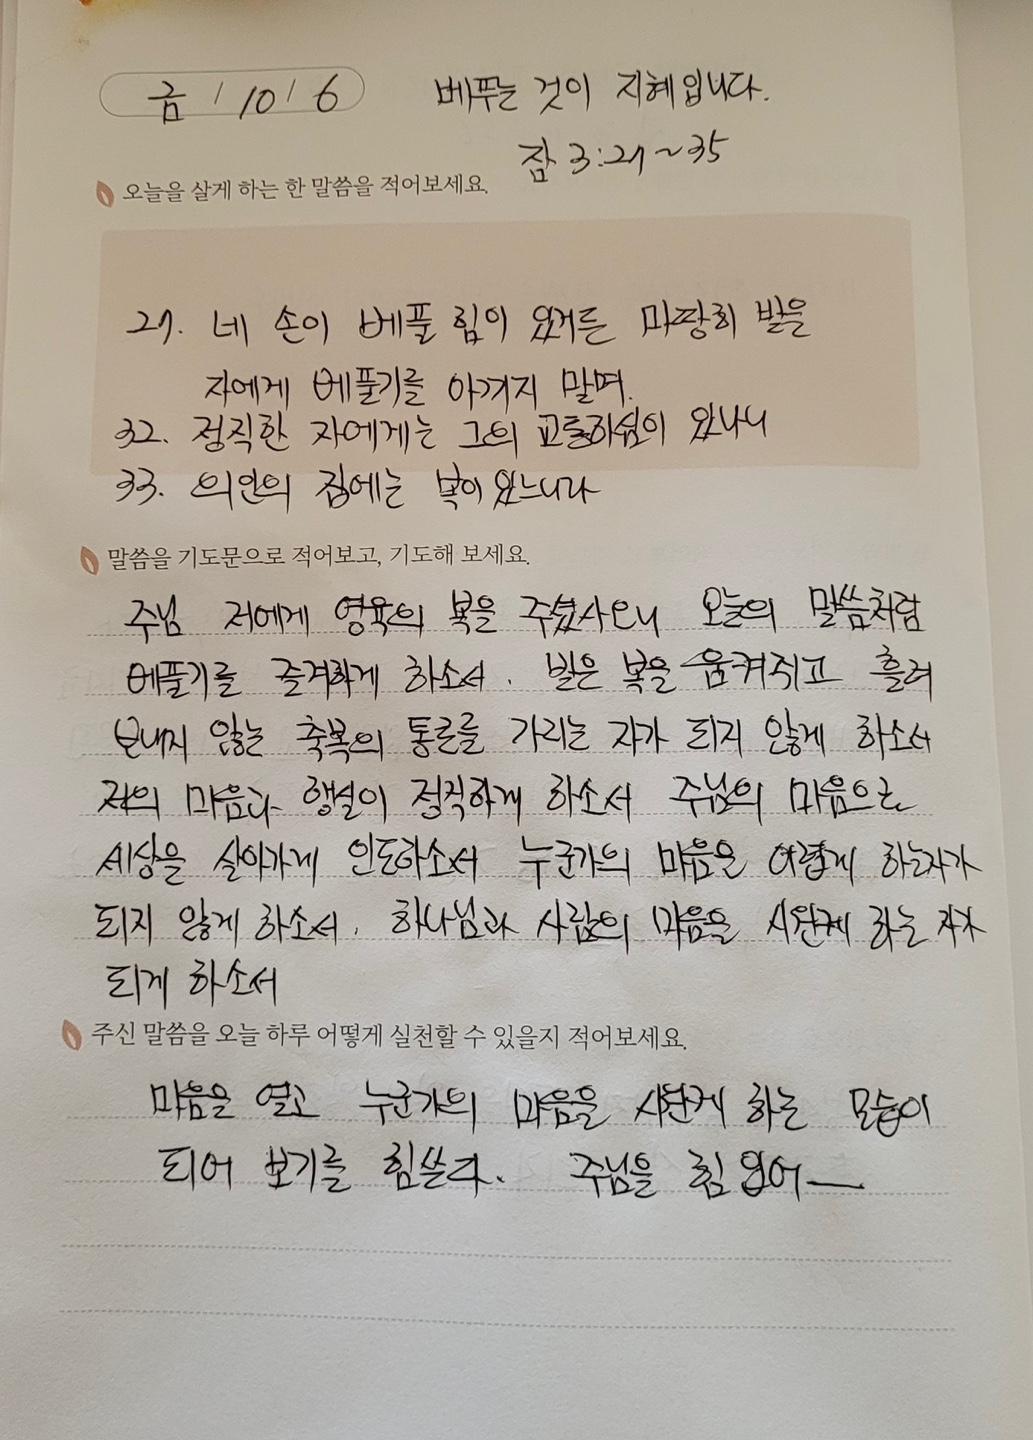 금 / 10 / 6
베푸는 것이 지혜입니다.
잠 3:27~35
오늘을 살게 하는 한 말씀을 적어보세요.
27. 네 손이 베풀 힘이 있거든 마땅히 받을
자에게 베풀기를 아끼지 말며.
32. 정직한 자에게는 그의 교통하심이 있나니
33. 의인의 집에는 복이 있느니라
말씀을 기도문으로 적어보고, 기도해 보세요.
주님 저에게 영육의 복을 주셨사오니 오늘의 말씀처럼
베풀기를 즐겨하게 하소서. 받은 복을 움켜쥐고 흘려
보내지 않는 축복의 통로를 가리는 자가 되지 않게 하소서
저의 마음과 행실이 정직하게 하소서 주님의 마음으로
세상을 살아가게 인도하소서 누군가의 마음을 어렵게 하는자가
되지 않게 하소서. 하나님과 사람의 마음을 시원케 하는 자가
되게 하소서
주신 말씀을 오늘 하루 어떻게 실천할 수 있을지 적어보세요.
마음을 열고 누군가의 마음을 시원케 하는 모습이
되어 보기를 힘쓴다. 주님을 힘입어—